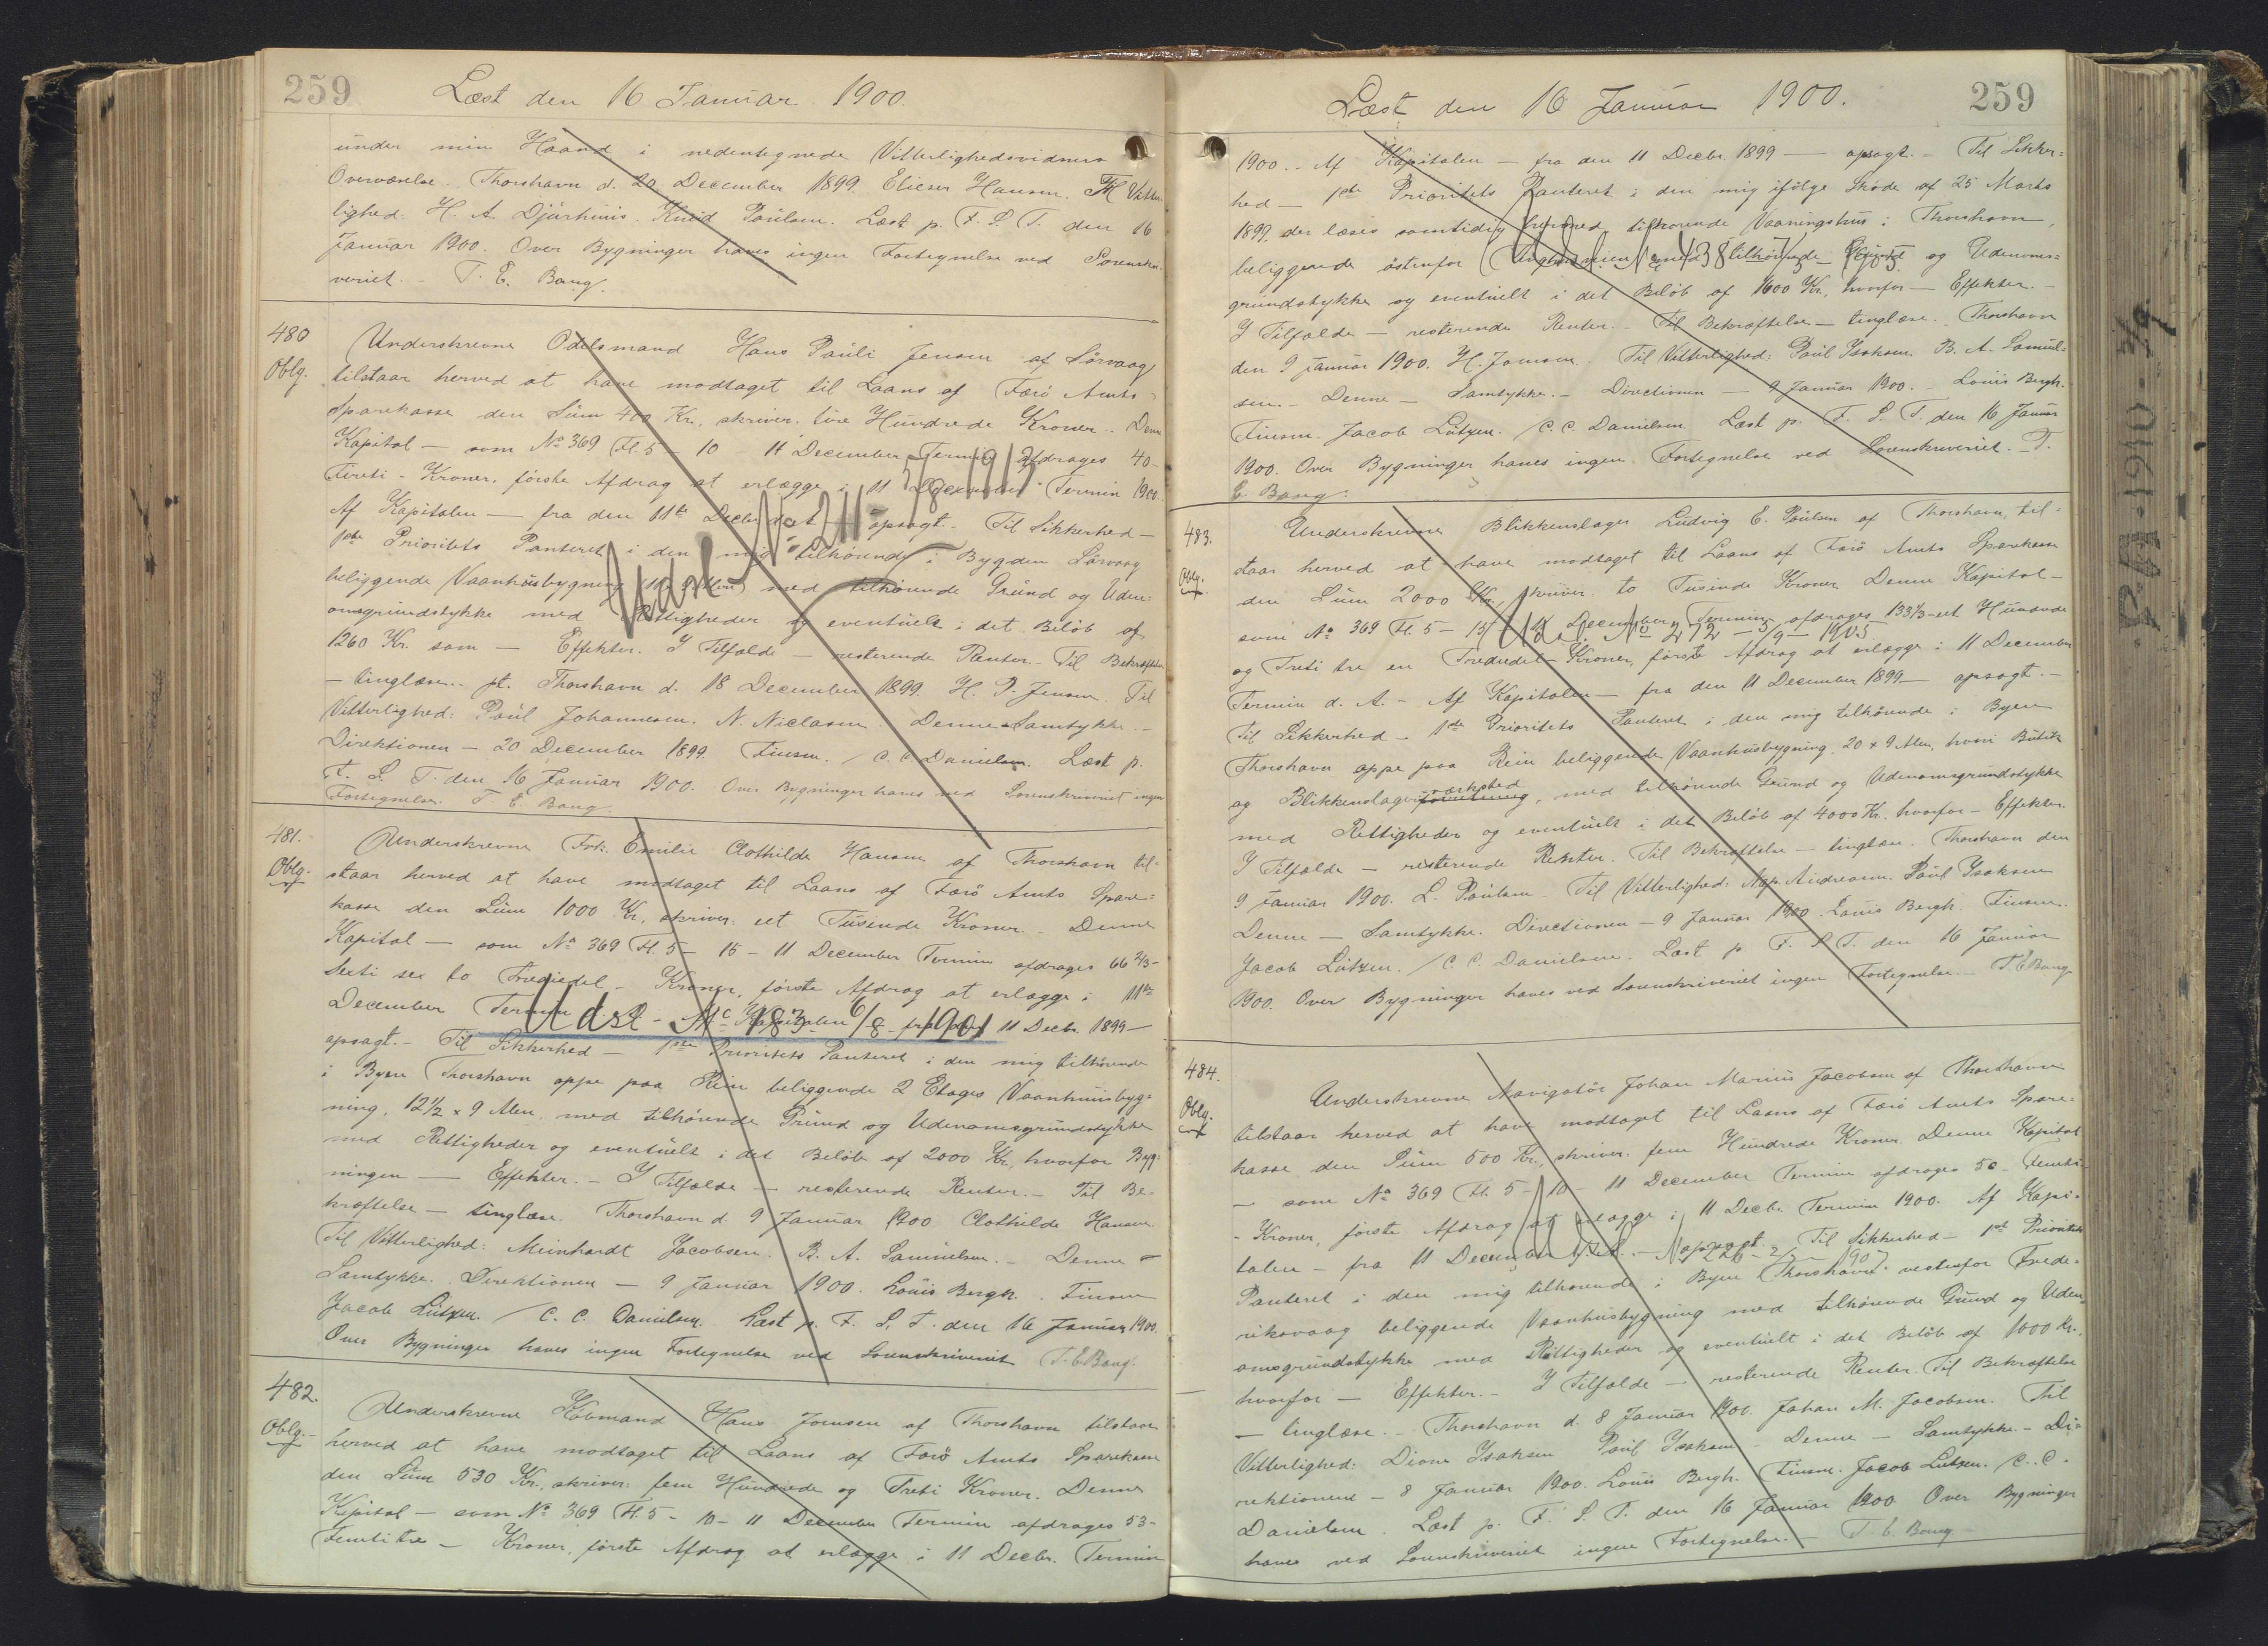 259
Læst den 16 Januar 1900.
under min Haand i nedentegnede Vitterlighedsvidners
Overværelse. Thorshavn d. 20 December 1899. Elieser Hansen. Til Vitter-
lighed: H. A. Djurhuus. Knud Poulsen. Læst p. F. S. T. den 16
Januar 1900. Over Bygninger haves ingen Fortegnelse ved Sorenskri-
veriet. - T. E. Bang.
480
Oblg.
Underskrevne Odelsmand Hans Pauli Jensen af Sörvaag
tilstaar herved at have modtaget til Laans af Færö Amts-
Sparekasse den Sum 400 Kr., skriver: fire Hundrede Kroner. - Denne
Kapital — som No 369 H. 5 - 10 - 11 December Termin afdrages 40 -
Fireti - Kroner, första Afdrag at erlægge i 11 December Termin 1900.
Af Kapitalen — fra den 11te Decbr opsagt. - Til Sikkerhed —
1ste Prioritets Panteret i den mig tilhørende i Bygden Sörvaag
beliggende Vaanhusbygning med tilhørende Grund og Uden-
omsgrundstykke med Rettigheder og eventuelt i det Beløb af
1260 Kr. som — Effekter. I Tilfælde — resterende Renter. - Til Bekræftelse
— tinglæse. - pt. Thorshavn d. 18 December 1899. H. P. Jensen. Til
Vitterlighed: Poul Johannesen. N. Niclasen. Denne - Samtykke. -
Direktionen — 20 December 1899. Finsen. / C. C. Danielsen. Læst p.
F. S. T. den 16 Januar 1900. Over Bygninger haves ved Sorenskriveriet ingen
Fortegnelse. T. E. Bang.
481.
Oblg.
Underskrevne Frk. Emilie Clothilde Hansen af Thorshavn til-
staar herved at have modtaget til Laans af Færö Amts Spare-
kasse den Sum 1000 Kr., skriver: eet Tusende Kroner. - Denne
Kapital — som No 369 H. 5 - 15 - 11 December Termin afdrages 66 2/3 -
Sexti sex to Trediedel - Kroner, første Afdrag at erlægge i 11te
December Termin Kapitalen fra den 11 Decbr. 1899 —
Udsl - No 183 6/8 - 1901
opsagt. - Til Sikkerhed — 1ste Prioritets Panteret i den mig tilhørende
i Byen Thorshavn oppe paa Rein beliggende 2 Etages Vaanhuusbyg-
ning, 12 1/2 x 9 Alen. med tilhørende Grund og Udenomsgrundstykke
med Rettigheder og eventuelt i det Beløb af 2000 Kr., hvorfor Byg-
ningen — Effekter. - I Tilfælde — resterende Renter. - Til Be-
kræftelse — tinglæse. Thorshavn d. 9 Januar 1900 Clothilde Hansen.
Til Vitterlighed: Meinhardt Jacobsen. B. A. Samuelsen. - Denne -
Samtykke. Direktionen — 9 Januar 1900. Louis Bergh. Finsen
Jacob Lützen. / C. C. Danielsen. Læst p. F. S. T. den 16 Januar 1900.
Over Bygninger haves ingen Fortegnelse ved Sorenskriveriet T. E. Bang.
482.
Oblg.
Underskrevne Købmand Hans Joensen af Thorshavn tilstaar
herved at have modtaget til Laans af Færö Amts Sparekasse
den Sum 530 Kr., skriver: fem Hundrede og Treti Kroner. Denne
Kapital — som No 369 H. 5 - 10 - 11 December Termin afdrages 53 -
Femti tre — Kroner, første Afdrag at erlægge i 11 Decbr. Termin
Læst den 16 Januar 1900.
259
1900. - Af Kapitalen — fra den 11 Decbr. 1899 — opsagt. - Til Sikker-
hed — 1ste Prioritets Panteret i den mig ifölge Skøde af 25 Marts
1899, der læses samtidig hermed tilhørende Vaaningshus i Thorshavn,
beliggende östenfor tilhørende Grund og Udenoms-
grundstykke og eventuelt i det Beløb af 1600 Kr., hvorfor — Effekter. -
I Tilfælde — resterende Renter. - Til Bekræftelse — tinglæse. Thorshavn
den 9 Januar 1900. H. Joensen. Til Vitterlighed: Poul Isaksen. B. A. Samuel-
sen. - Denne — Samtykke. - Directionen — 9 Januar 1900. - Louis Bergh.
Finsen. Jacob Lützen. / C. C. Danielsen. Læst p. F. S. T. den 16 Januar
1900. Over Bygninger haves ingen Fortegnelse ved Sorenskriveriet. - T.
E. Bang.
483.
Oblg.
Underskrevne Blikkenslager Ludvig E. Poulsen af Thorshavn, til-
staar herved at have modtaget til Laans af Færö Amts Sparekasse
den Sum 2000 Kr., skriver: to Tusinde Kroner. Denne Kapital —
som No 369 H. 5 - 15 - 11 December Termin afdrages 133 1/3 - eet Hundrede
Udsl. No 272 - 5/9 - 1905
og Treti tre en Trediedel - Kroner, første Afdrag at erlægge i 11 December
Termin d. A. - Af Kapitalen — fra den 11 December 1899 — opsagt. -
Til Sikkerhed — 1ste Prioritets Panteret i den mig tilhørende i Byen
Thorshavn oppe paa Rein beliggende Vaanhusbygning, 20 x 9 Alen, hvori Butik
og Blikkenslagerværksted, med tilhørende Grund og Udenomsgrundstykke
med Rettigheder og eventuelt i det Beløb af 4000 Kr. hvorfor — Effekter.
I Tilfælde — resterende Renter. Til Bekræftelse — tinglæse. Thorshavn den
9 Januar 1900. L. Poulsen. Til Vitterlighed: Andreasen. Poul Isaksen
Denne — Samtykke. Directionen — 9 Januar 1900. Louis Bergh. Finsen.
Jacob Lützen. / C. C. Danielsen. Læst p F. S. T. den 16 Januar
1900. Over Bygninger haves ved Sorenskriveriet ingen Fortegnelse. — T. E Bang.
484.
Oblg.
Underskrevne Navigatör Johan Marius Jacobsen af Thorshavn
tilstaar herved at have modtaget til Laans af Færö Amts Spare-
kasse den Sum 500 Kr., skriver: fem Hundrede Kroner. Denne Kapital
— som No 369 H. 5 - 10 - 11 December Termin afdrages 50 - Femti -
- Kroner, første Afdrag at erlægge i 11 Decbr. Termin 1900. Af Kapi-
talen — fra 11 December opsagt. Til Sikkerhed — 1ste Prioritets
Panteret i den mig tilhørende i Byen Thorshavn vestenfor Frede-
riksvaag beliggende Vaanhusbygning med tilhørende Grund og Uden-
omsgrundstykke med Rettigheder og eventuelt i det Beløb af 1000 Kr.,
hvorfor — Effekter. - I Tilfælde — resterende Renter. Til Bekræftelse
— tinglæse. - Thorshavn d. 8 Januar 1900. Johan M. Jacobsen. Til
Vitterlighed: Dione Isaksen Poul Isaksen - Denne — Samtykke. - Di-
rektionen — 8 Januar 1900. Louis Bergh. Finsen. Jacob Lützen. / C. C.
Danielsen. Læst p. F. S. T. den 16 Januar 1900 Over Bygninger
haves ved Sorenskriveriet ingen Fortegnelse. — T. E. Bang